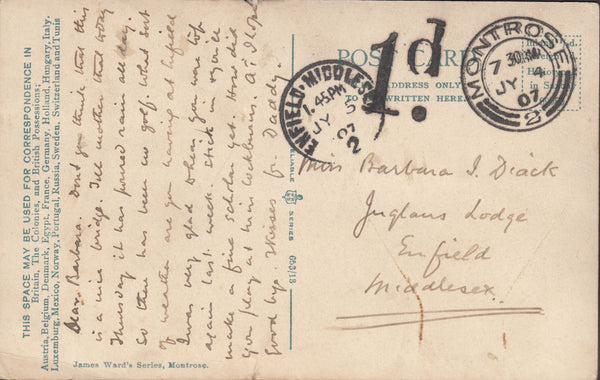 THIS SPACE MAY BE USED FOR CORRESPONDENCE IN
Britain, The Colonies, and British Possessions;
Austria, Belgium, Denmark, Egypt, France, Germany, Holland, Hungary, Italy,
Luxemburg, Mexico, Norway, Portugal, Russia, Sweden, Switzerland and Tunis
Dear Barbara. Don't you think that this
is a nice bridge. Tell mother that today
Thursday it has poured rain all day.
So there has been no golf. What sort
of weather are you having at Enfield
I was very glad when you were top
again last week. Stick in & you'll
make a fine scholar yet. How did
you play at Miss Cockburns. A 1 I hope
Good bye. Kisses fr. Daddy
James Ward's Series, Montrose.
RELIABLE
SERIES
693/13
POST CARD
ADDRESS ONLY
TO BE WRITTEN HERE.
1d.
MONTROSE
7 30 PM
JY 4
07
2
ENFIELD-MIDDLESEX
1.45PM
JY 5
07
2
Miss Barbara I. Diack
Inglans Lodge
Enfield
Middlesex